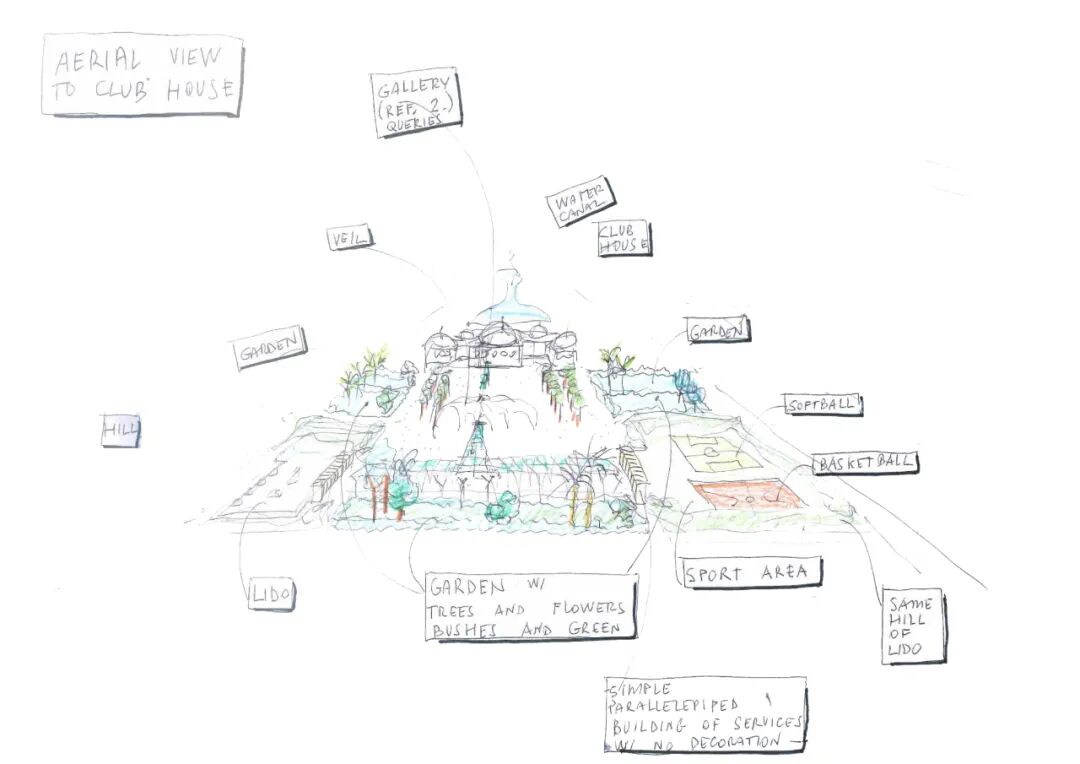 AERIAL VIEW
TO CLUB HOUSE
GALLERY
(REF. 2.)
QUERIES
WATER
CANAL
CLUB
HOUSE
VEIL
GARDEN
GARDEN
SOFTBALL
HILL
BASKETBALL
LIDO
GARDEN W/
TREES AND FLOWERS
BUSHES AND GREEN
SPORT AREA
SAME
HILL
OF
LIDO
SIMPLE
PARALLELEPIPED
BUILDING OF SERVICES
W/ NO DECORATION